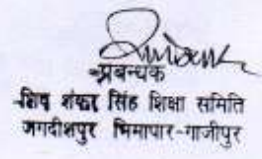 प्रबन्धक
शिव शंकर सिंह शिक्षा समिति
जगदीशपुर भिमापार-गाजीपुर